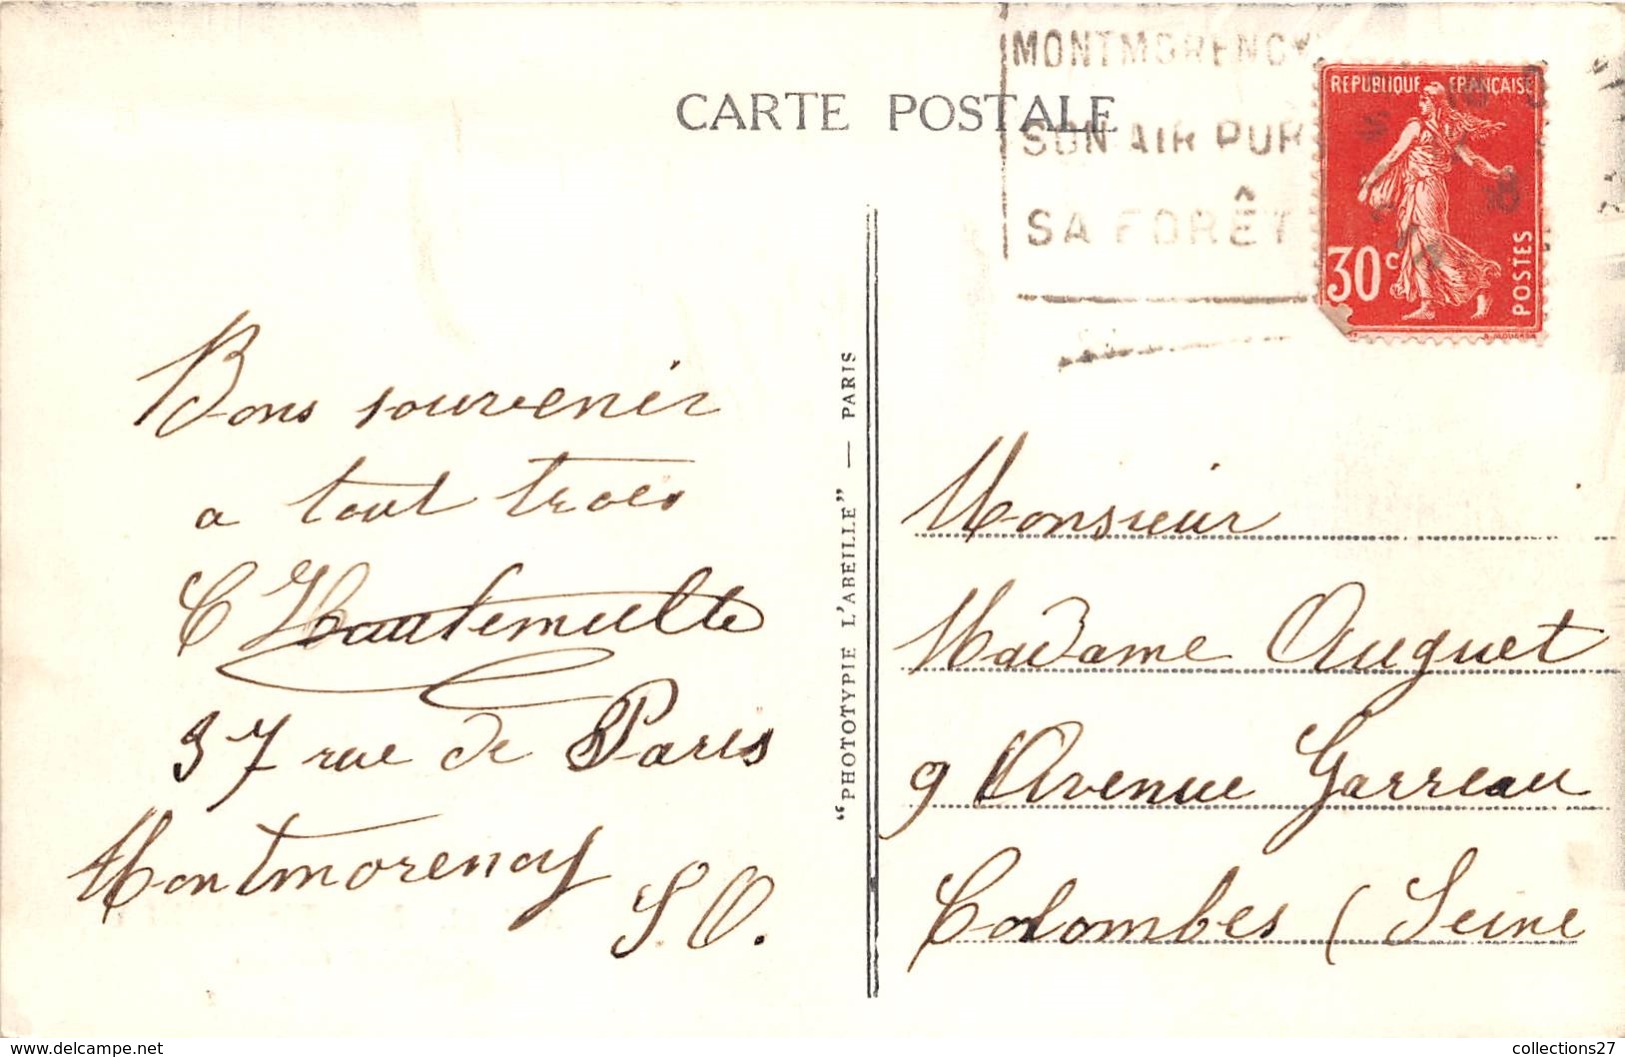 CARTE POSTALE
MONTMORENCY
SON AIR PUR
SA FORÊT
REPUBLIQUE FRANCAISE
30c
POSTES
Bons souvenir
a tout trois
C Hautemulle
37 rue de Paris
Montmorency
S.O.
"PHOTOTYPIE L'ABEILLE" — PARIS
Monsieur
Madame Auguet
9 Avenue Garreau
Colombes (Seine
https://www.delcampe.net
collections27